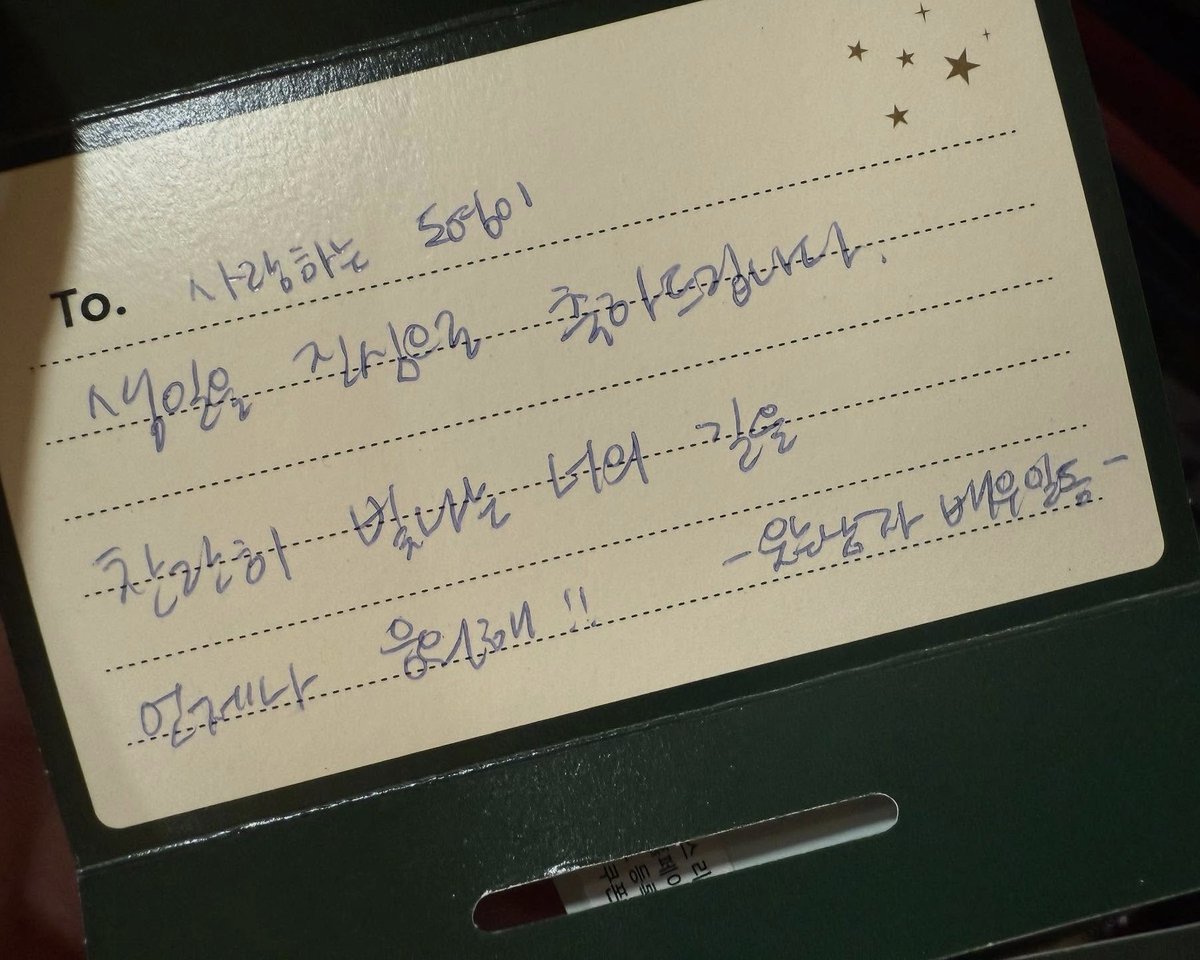 To. 사랑하는 도영이
생일을 진심으로 축하드립니다.
찬란히 빛나는 너의 길을
언제나 응원해!!
-웃는남자 배우일동-